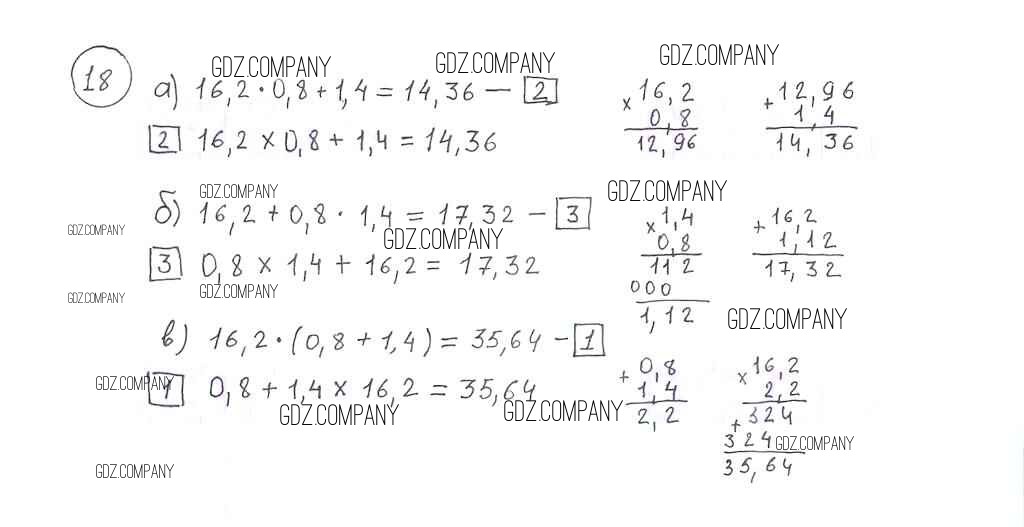 18
GDZ.COMPANY GDZ.COMPANY GDZ.COMPANY
а) 16,2 · 0,8 + 1,4 = 14,36 — 2
2 16,2 × 0,8 + 1,4 = 14,36
× 16,2
0,8
12,96
+ 12,96
1,4
14,36
GDZ.COMPANY GDZ.COMPANY
б) 16,2 + 0,8 · 1,4 = 17,32 – 3
GDZ.COMPANY GDZ.COMPANY
3 0,8 × 1,4 + 16,2 = 17,32
GDZ.COMPANY GDZ.COMPANY
× 1,4
0,8
112
000
1,12
+ 16,2
1,12
17,32
GDZ.COMPANY
в) 16,2 · (0,8 + 1,4) = 35,64 – 1
GDZ.COMPANY
1 0,8 + 1,4 × 16,2 = 35,64
GDZ.COMPANY GDZ.COMPANY
+ 0,8
1,4
2,2
× 16,2
2,2
+ 324
324
35,64
GDZ.COMPANY
GDZ.COMPANY